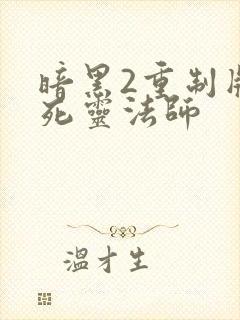 暗黑2重制版
死靈法師
溫才生